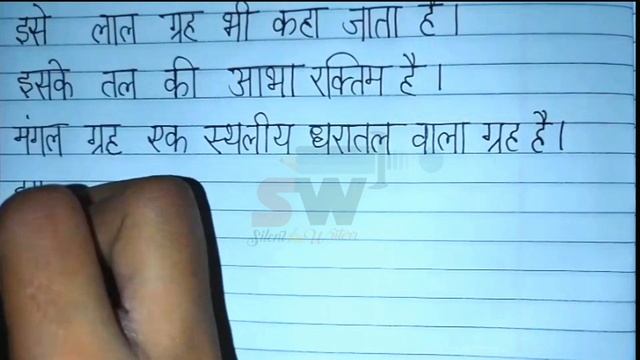 इसे लाल ग्रह भी कहा जाता है।
इसके तल की आभा रक्तिम है।
मंगल ग्रह एक स्थलीय धरातल वाला ग्रह है।
SW
Silent Writer